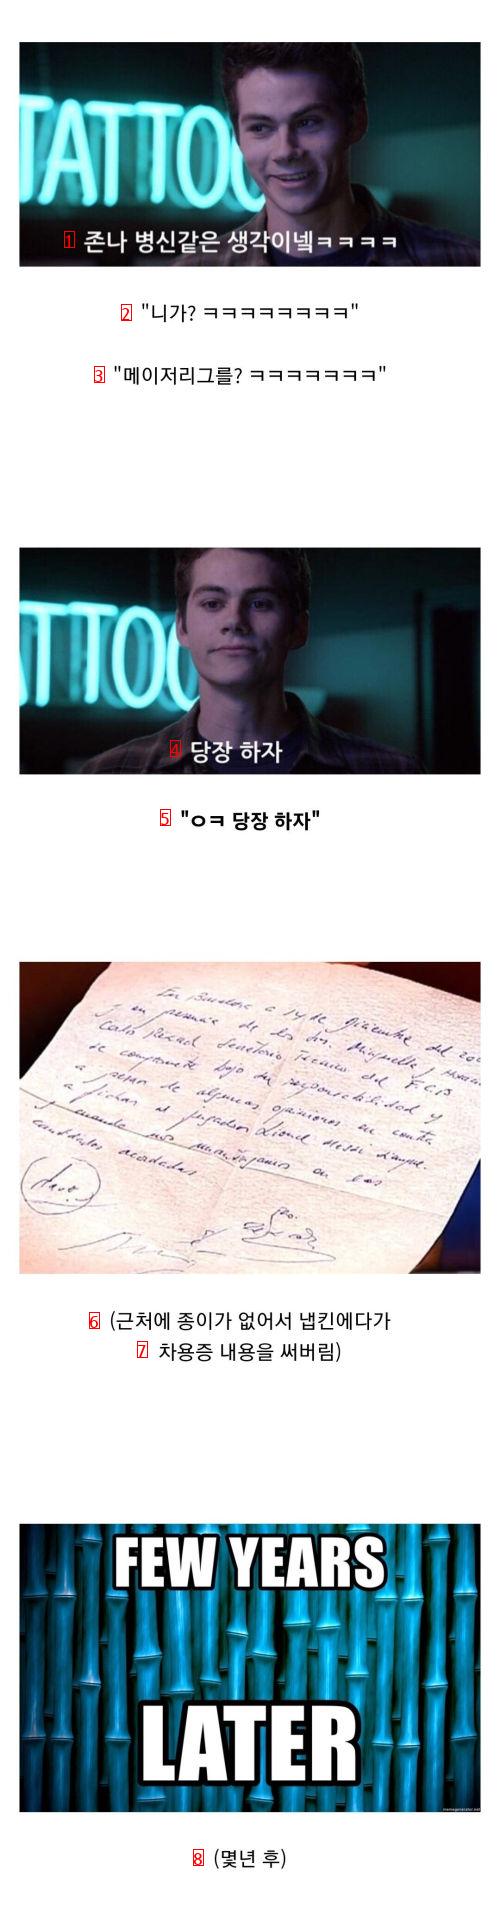 TATTOO
1 존나 병신같은 생각이넼ㅋㅋㅋㅋ
2 "니가? ㅋㅋㅋㅋㅋㅋㅋㅋ"
3 "메이저리그를? ㅋㅋㅋㅋㅋㅋㅋ"
ATTOO
4 당장 하자
5 "ㅇㅋ 당장 하자"
En Barcelona a 14 de diciembre del 200
y en presencia de los Srs. Minguella y Horacio
Carles Rexach Secretario Técnico del F.C.B
se compromete bajo su responsabilidad y
a pesar de algunas opiniones en contra
a fichar al jugador Lionel Messi siempre
y cuando nos mantengamos en las
cantidades acordadas
6 (근처에 종이가 없어서 냅킨에다가
7 차용증 내용을 써버림)
FEW YEARS
LATER
memegenerator.net
8 (몇년 후)